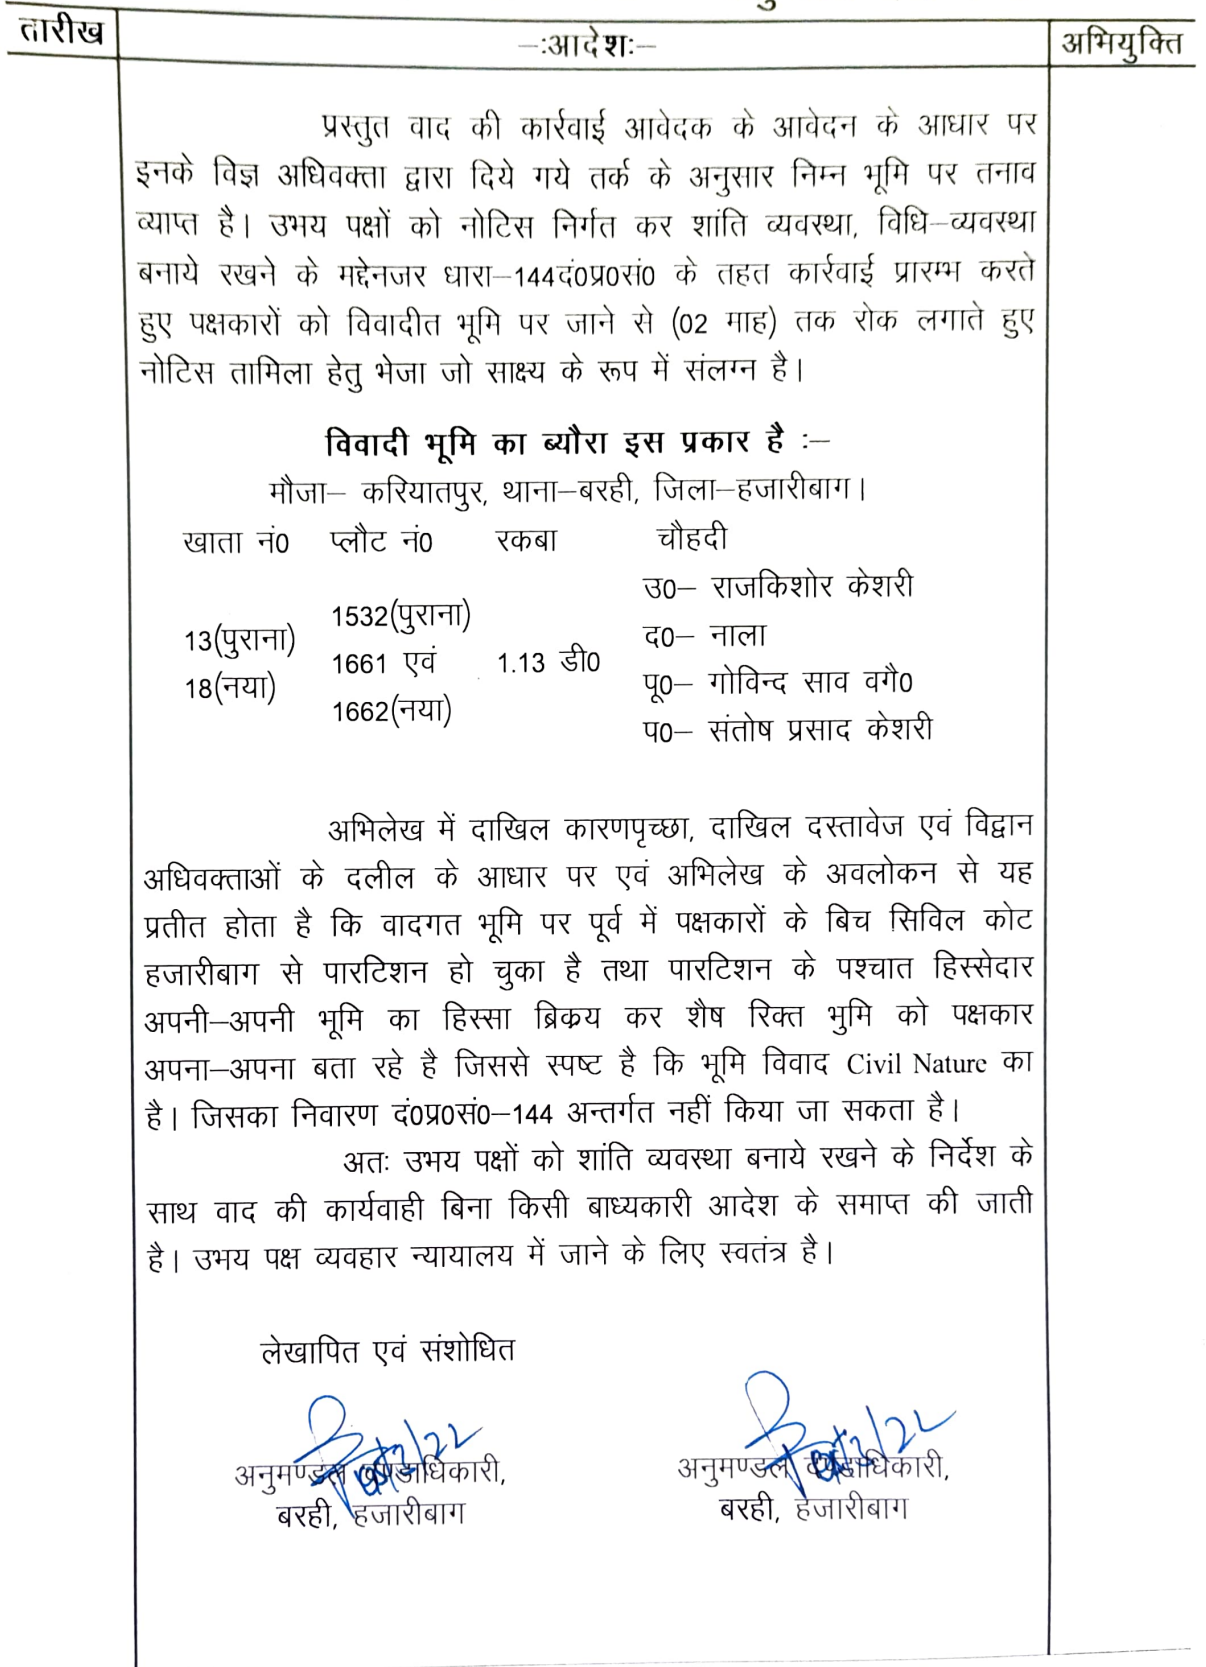 तारीख
–:आदेशः–
अभियुक्ति
प्रस्तुत वाद की कार्रवाई आवेदक के आवेदन के आधार पर
इनके विज्ञ अधिवक्ता द्वारा दिये गये तर्क के अनुसार निम्न भूमि पर तनाव
व्याप्त है। उभय पक्षों को नोटिस निर्गत कर शांति व्यवस्था, विधि–व्यवस्था
बनाये रखने के मद्देनजर धारा–144दं0प्र0सं0 के तहत कार्रवाई प्रारम्भ करते
हुए पक्षकारों को विवादीत भूमि पर जाने से (02 माह) तक रोक लगाते हुए
नोटिस तामिला हेतु भेजा जो साक्ष्य के रूप में संलग्न है।
विवादी भूमि का ब्यौरा इस प्रकार है :–
मौजा– करियातपुर, थाना–बरही, जिला–हजारीबाग।
खाता नं0 प्लौट नं0 रकबा चौहदी
13(पुराना)
18(नया)
1532(पुराना)
1661 एवं
1662(नया)
1.13 डी0
उ0– राजकिशोर केशरी
द0– नाला
पू0– गोविन्द साव वगै0
प0– संतोष प्रसाद केशरी
अभिलेख में दाखिल कारणपृच्छा, दाखिल दस्तावेज एवं विद्वान
अधिवक्ताओं के दलील के आधार पर एवं अभिलेख के अवलोकन से यह
प्रतीत होता है कि वादगत भूमि पर पूर्व में पक्षकारों के बिच सिविल कोट
हजारीबाग से पारटिशन हो चुका है तथा पारटिशन के पश्चात हिस्सेदार
अपनी–अपनी भूमि का हिस्सा ब्रिक्रय कर शैष रिक्त भुमि को पक्षकार
अपना–अपना बता रहे है जिससे स्पष्ट है कि भूमि विवाद Civil Nature का
है। जिसका निवारण दं0प्र0सं0–144 अन्तर्गत नहीं किया जा सकता है।
अतः उभय पक्षों को शांति व्यवस्था बनाये रखने के निर्देश के
साथ वाद की कार्यवाही बिना किसी बाध्यकारी आदेश के समाप्त की जाती
है। उभय पक्ष व्यवहार न्यायालय में जाने के लिए स्वतंत्र है।
लेखापित एवं संशोधित
अनुमण्डल दण्डाधिकारी,
बरही, हजारीबाग
अनुमण्डल दण्डाधिकारी,
बरही, हजारीबाग